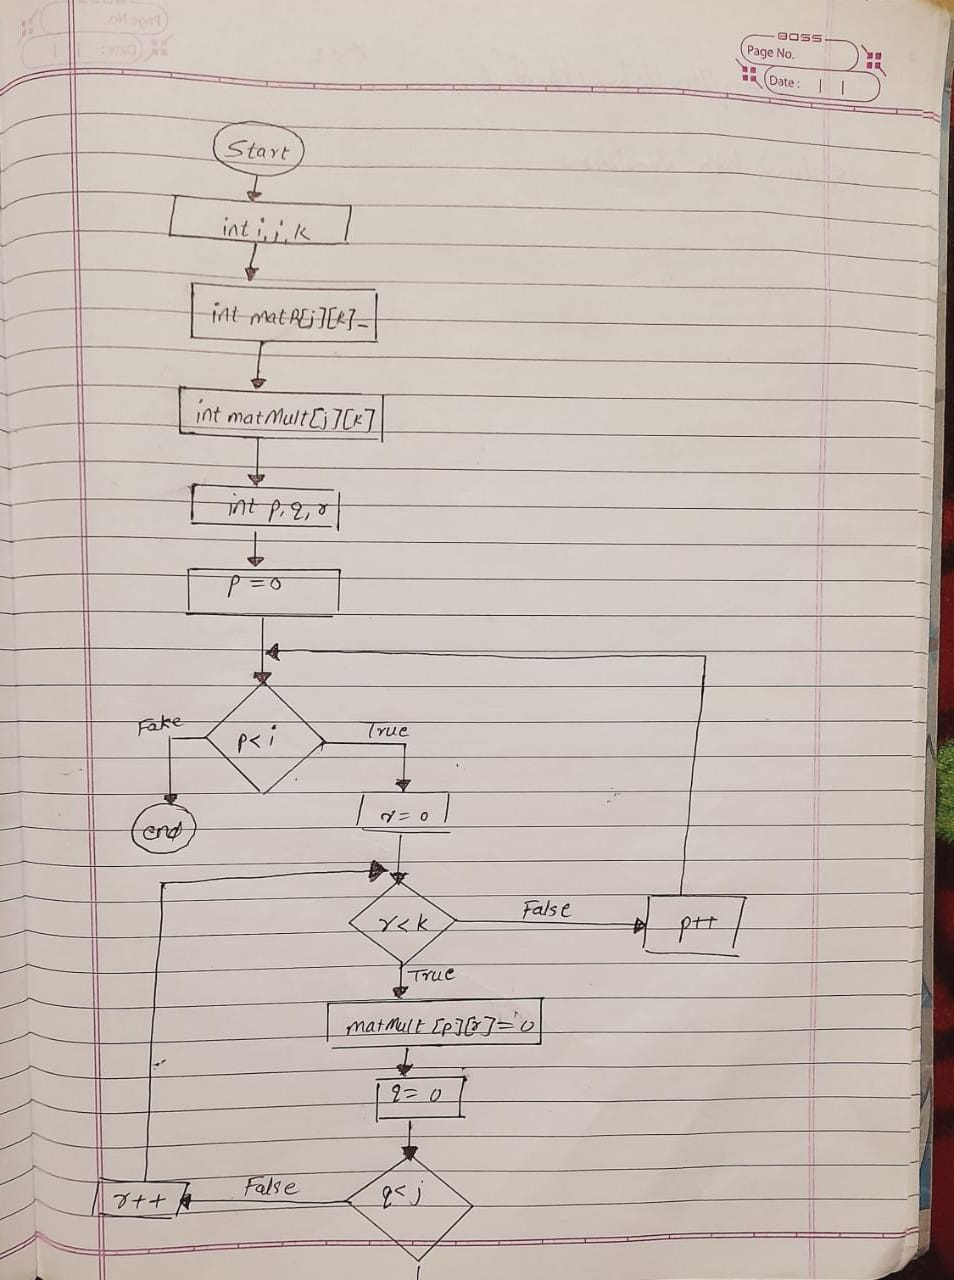 BOSS
Page No.
Date :
Start
int i, j, k
int matB[j][k]
int matMult[j][k]
int p, q, r
p = 0
p < i
Fake
True
end
r = 0
r < k
False
p++
True
matMult [p][r] = 0
q = 0
q < j
False
r++